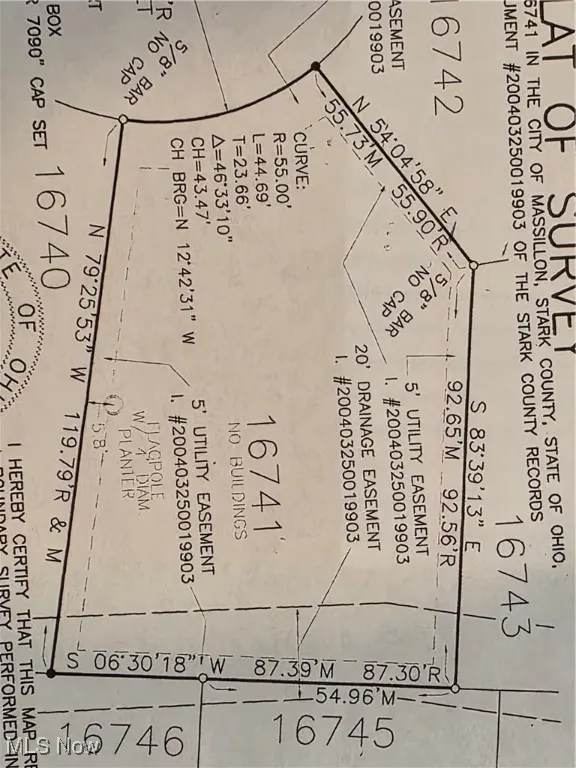 LAT OF SURVEY
6741 IN THE CITY OF MASSILLON, STARK COUNTY, STATE OF OHIO,
UMENT #200403250019903 OF THE STARK COUNTY RECORDS
16742
16743
ASEMENT
0019903
N 54°04'58" E
55.73'M 55.90'R
5/8" BAR
NO CAP
S 83°39'13" E
92.65'M 92.56'R
5' UTILITY EASEMENT
I. #200403250019903
20' DRAINAGE EASEMENT
I. #200403250019903
CURVE:
R=55.00'
L=44.69'
T=23.66'
Δ=46°33'10"
CH=43.47'
CH BRG=N 12°42'31" W
16741
NO BUILDINGS
5' UTILITY EASEMENT
I. #200403250019903
FLAGPOLE
W/ 4' DIAM
PLANTER
5.8'
5/8" BAR
NO CAP
BOX
7090" CAP SET
16740
N 79°25'53" W 119.79'R & M
S 06°30'18" W 87.39'M 87.30'R
54.96'M
16746
16745
TE OF OH
I HEREBY CERTIFY THAT THIS MAP RE
BOUNDARY SURVEY PERFORMED IN
MLS Now